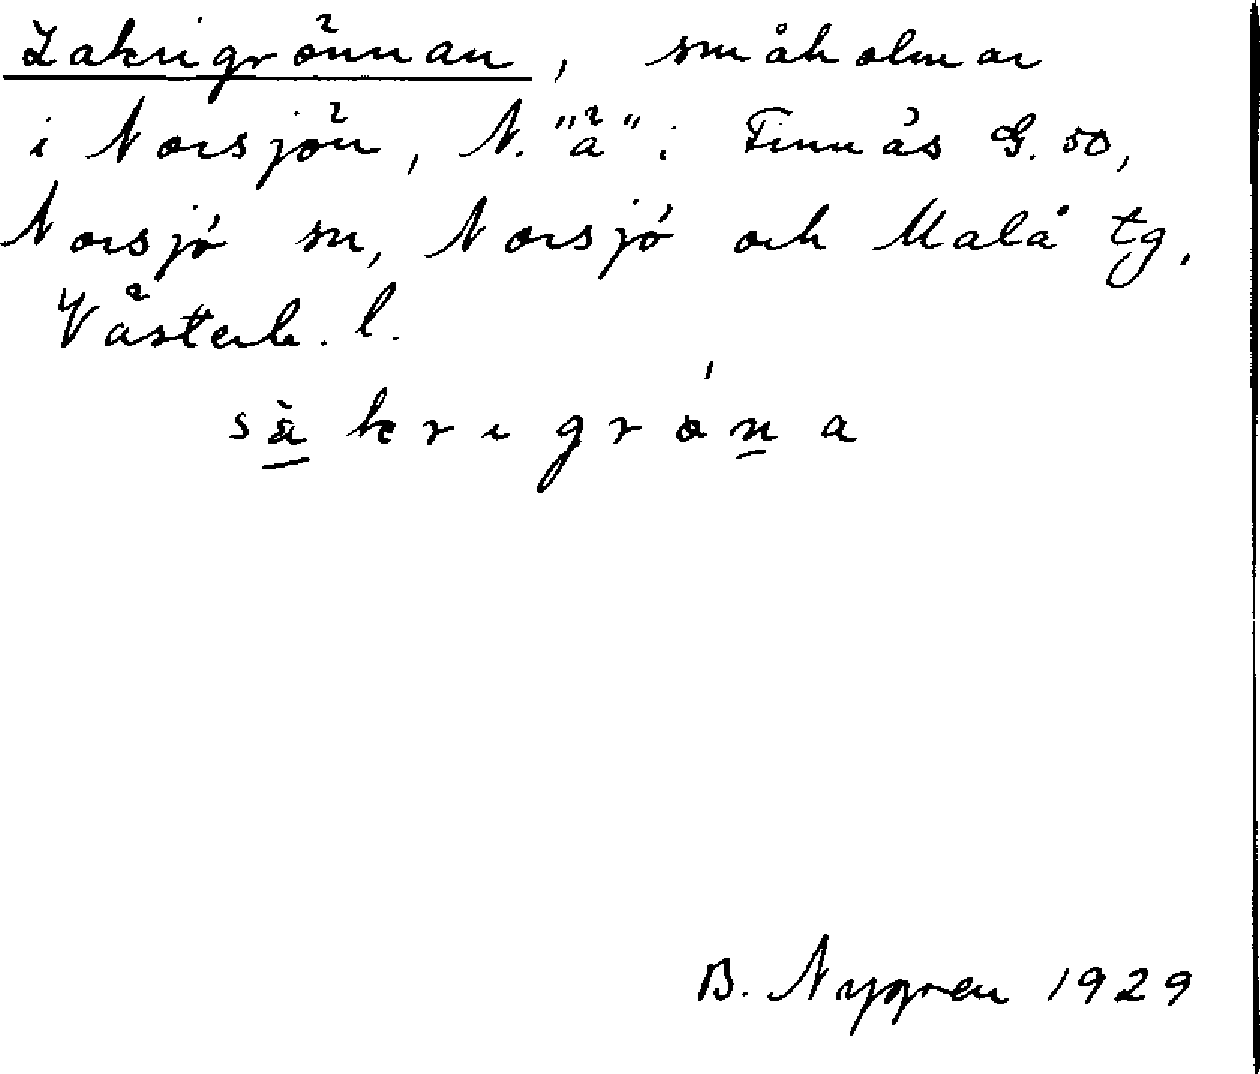 Zakrigrönnan, småholmar
i Norsjön, N. "ä": Finnås G. 50,
Norsjö sn, Norsjö och Malå tg,
Västerb. l.
B. Nygren 1929